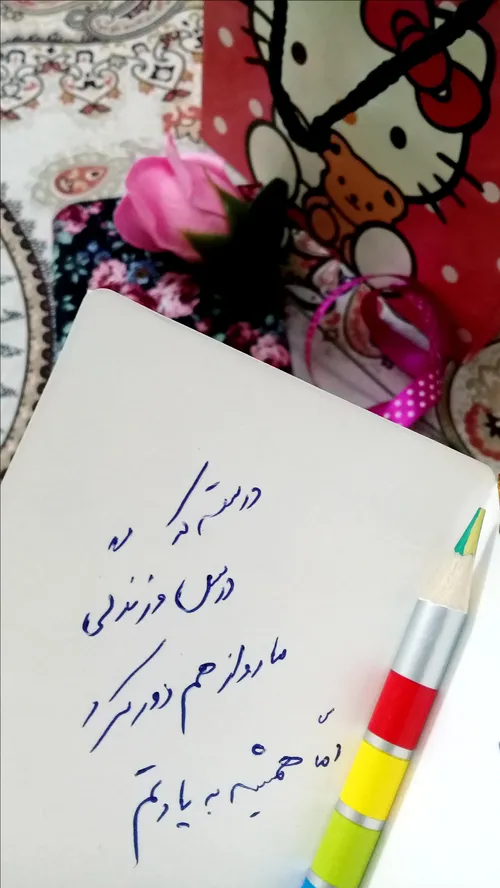 درسته که
درس و زندگی
ما رو از هم دور کرد
امّا همیشه به یادتم